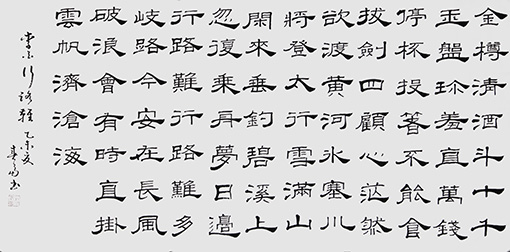 金樽清酒斗十千
玉盤珎羞直萬錢
停杯投箸不能食
拔劍四顧心茫然
欲渡黄河冰塞川
將登太行雪滿山
閑來垂釣碧溪上
忽復乘舟夢日邊
行路難行路難多
岐路今安在長風
破浪會有時直掛
雲帆濟滄海
李白行路難 乙未 書